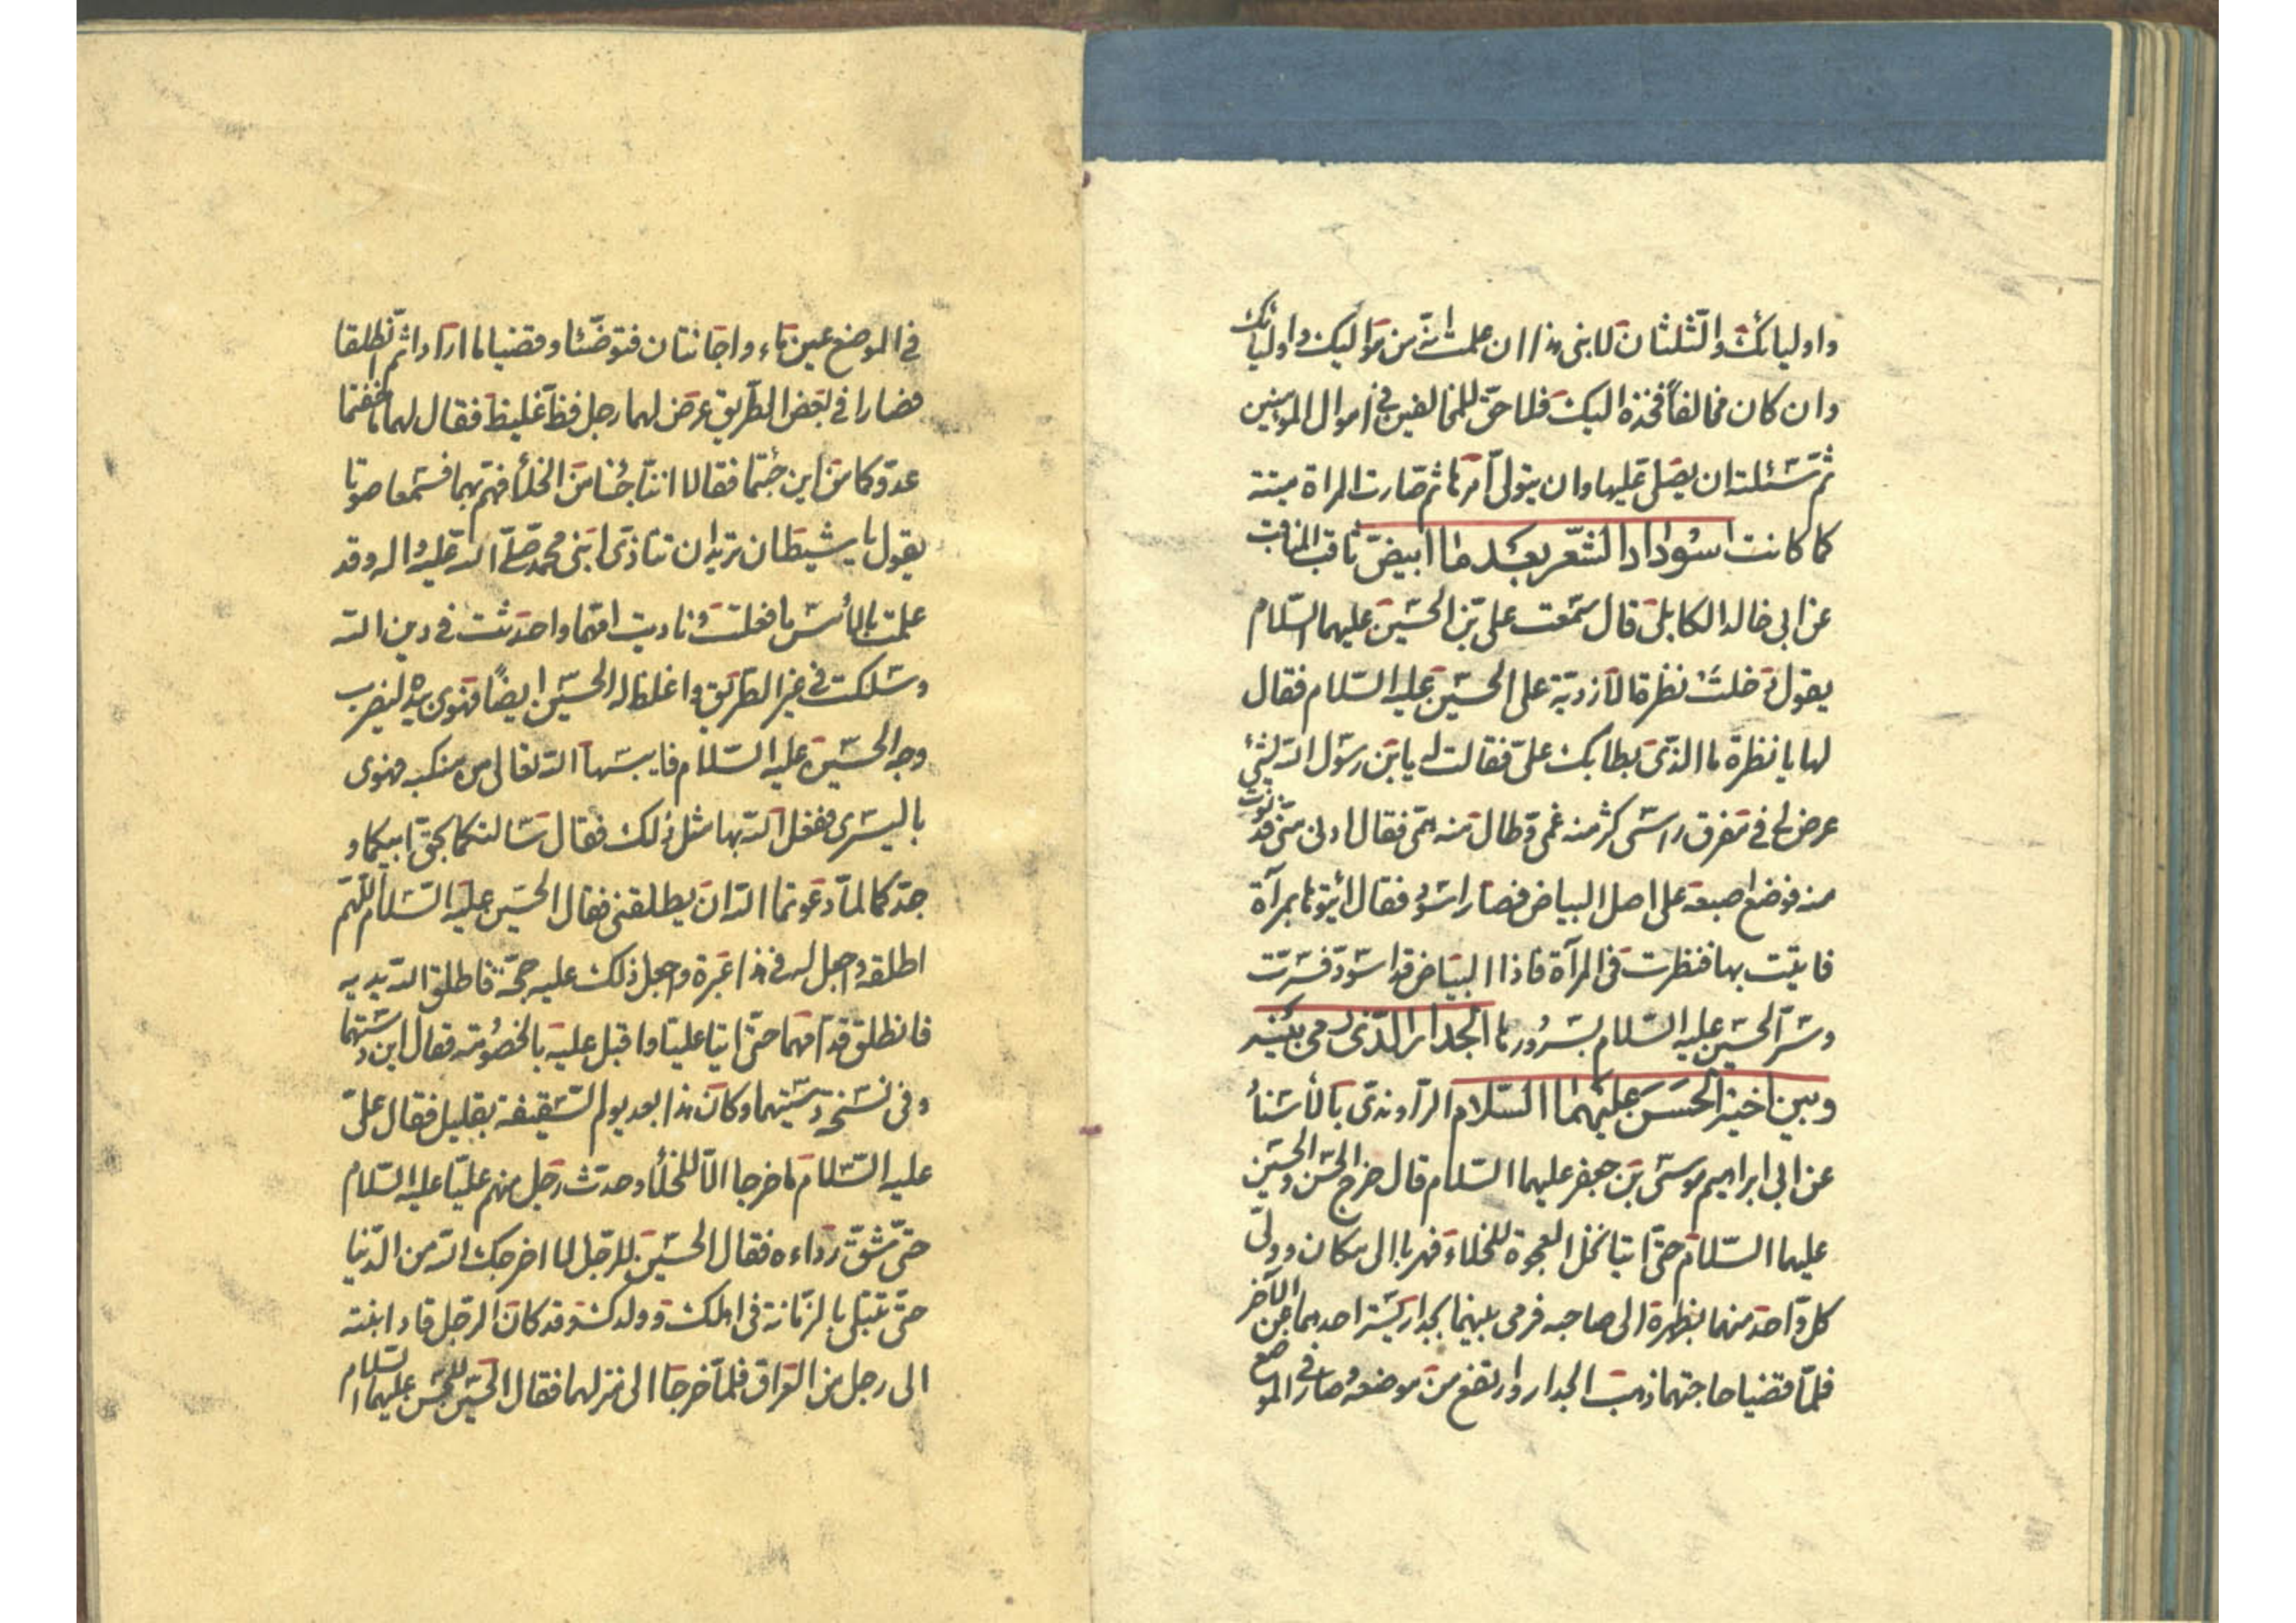 واوليائك والثلثان لابنى هذا ان علمت انه من مواليك واوليائك
وان كان مخالفاً فخذه اليك فلا حق للمخالفين فى اموال المؤمنين
ثم سئلته ان يصلى عليها وان يتولى امرها ثم صارت المراة ميتة
كما كانت اسوداد الشعر بعد ما ابيض ثاقب المناقب
عن ابى خالد الكابلى قال سمعت على بن الحسين عليهما السلام
يقول دخلت نظرة الازدية على الحسين عليه السلام فقال
لها يا نظرة ما الذى بطا بك على فقالت له يابن رسول الله لشئ
عرض لى فى مفرق راسى كثر منه غمى وطال منه همى فقال ادنى منى فدنوت
منه فوضع اصبعه على اصل البياض فصار اسود فقال ائتوها بمرآة
فاتيت بها فنظرت فى المرآة فاذا البياض قد اسود فسرت
وسر الحسين عليه السلام بسرورها الجدار الذى رمى بينه
وبين اخيه الحسن عليهما السلام الراوندى بالاسناد
عن ابى ابراهيم موسى بن جعفر عليهما السلام قال خرج الحسن والحسين
عليهما السلام حتى اتيا نخل العجوة للخلاء فهربا الى مكان وولى
كل واحد منهما بظهره الى صاحبه فرمى بينهما بجدار يستر احدهما عن الآخر
فلما قضيا حاجتهما ذهب الجدار وارتفع من موضعه وصار فى الموضع
فى الموضع عين ماء واجانتان فتوضئا وقضيا ما ارادا ثم انطلقا
فصارا فى بعض الطريق عرض لهما رجل فظ غليظ فقال لهما ما خفتما
عدوكما من اين جئتما فقالا اننا جئنا من الخلأ فهم بهما فسمعا صوتا
يقول يا شيطان تريد ان تناذى ابنى محمد صلى الله عليه واله وقد
علمت بالأمس ما فعلت وناديت امهما واحدثت فى دين الله
وسلكت فى غير الطريق واغلظ له الحسين ايضاً فهوى بيده ليضرب
وجه الحسين عليه السلام فايبسها الله تعالى من منكبه فهوى
باليسرى ففعل الله بها مثل ذلك فقال سالتكما بحق ابيكما و
جدكما لما دعوتما الله ان يطلقنى فقال الحسين عليه السلام اللهم
اطلقه واجعل له فى هذا عبرة واجعل ذلك عليه حجة فاطلق الله يديه
فانطلق قدامهما حتى اتيا عليا واقبل عليه بالخصومة فقال اين دسستهما
وفى نسخة دسيتهما وكان هذا بعد يوم السقيفة بقليل فقال على
عليه السلام ما خرجا الا للخلأ وحدث رجل منهم عليا عليه السلام
حتى شق رداءه فقال الحسين للرجل لا اخرجك الله من الدنيا
حتى تبتلى بالزمانة فى اهلك وولدك وقد كان الرجل قاد ابنته
الى رجل من العراق فلما خرجا الى منزلهما فقال الحسين للحسن عليهما السلام